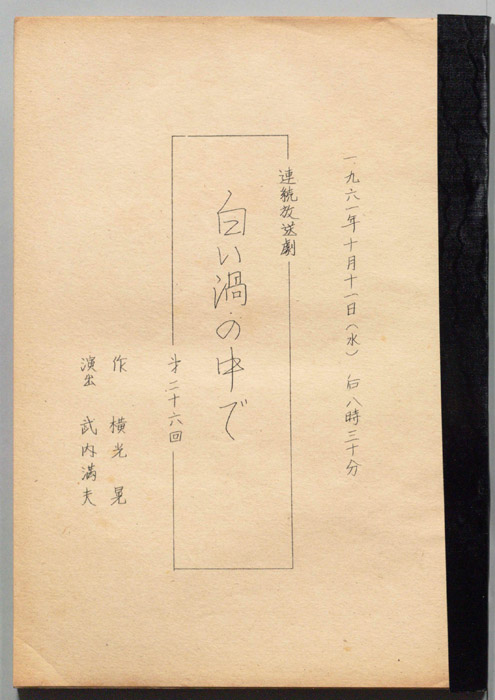 一九六一年十月十一日(水) 后八時三十分
連続放送劇
白い渦の中で
第二十六回
作 横光晃
演出 武内満夫